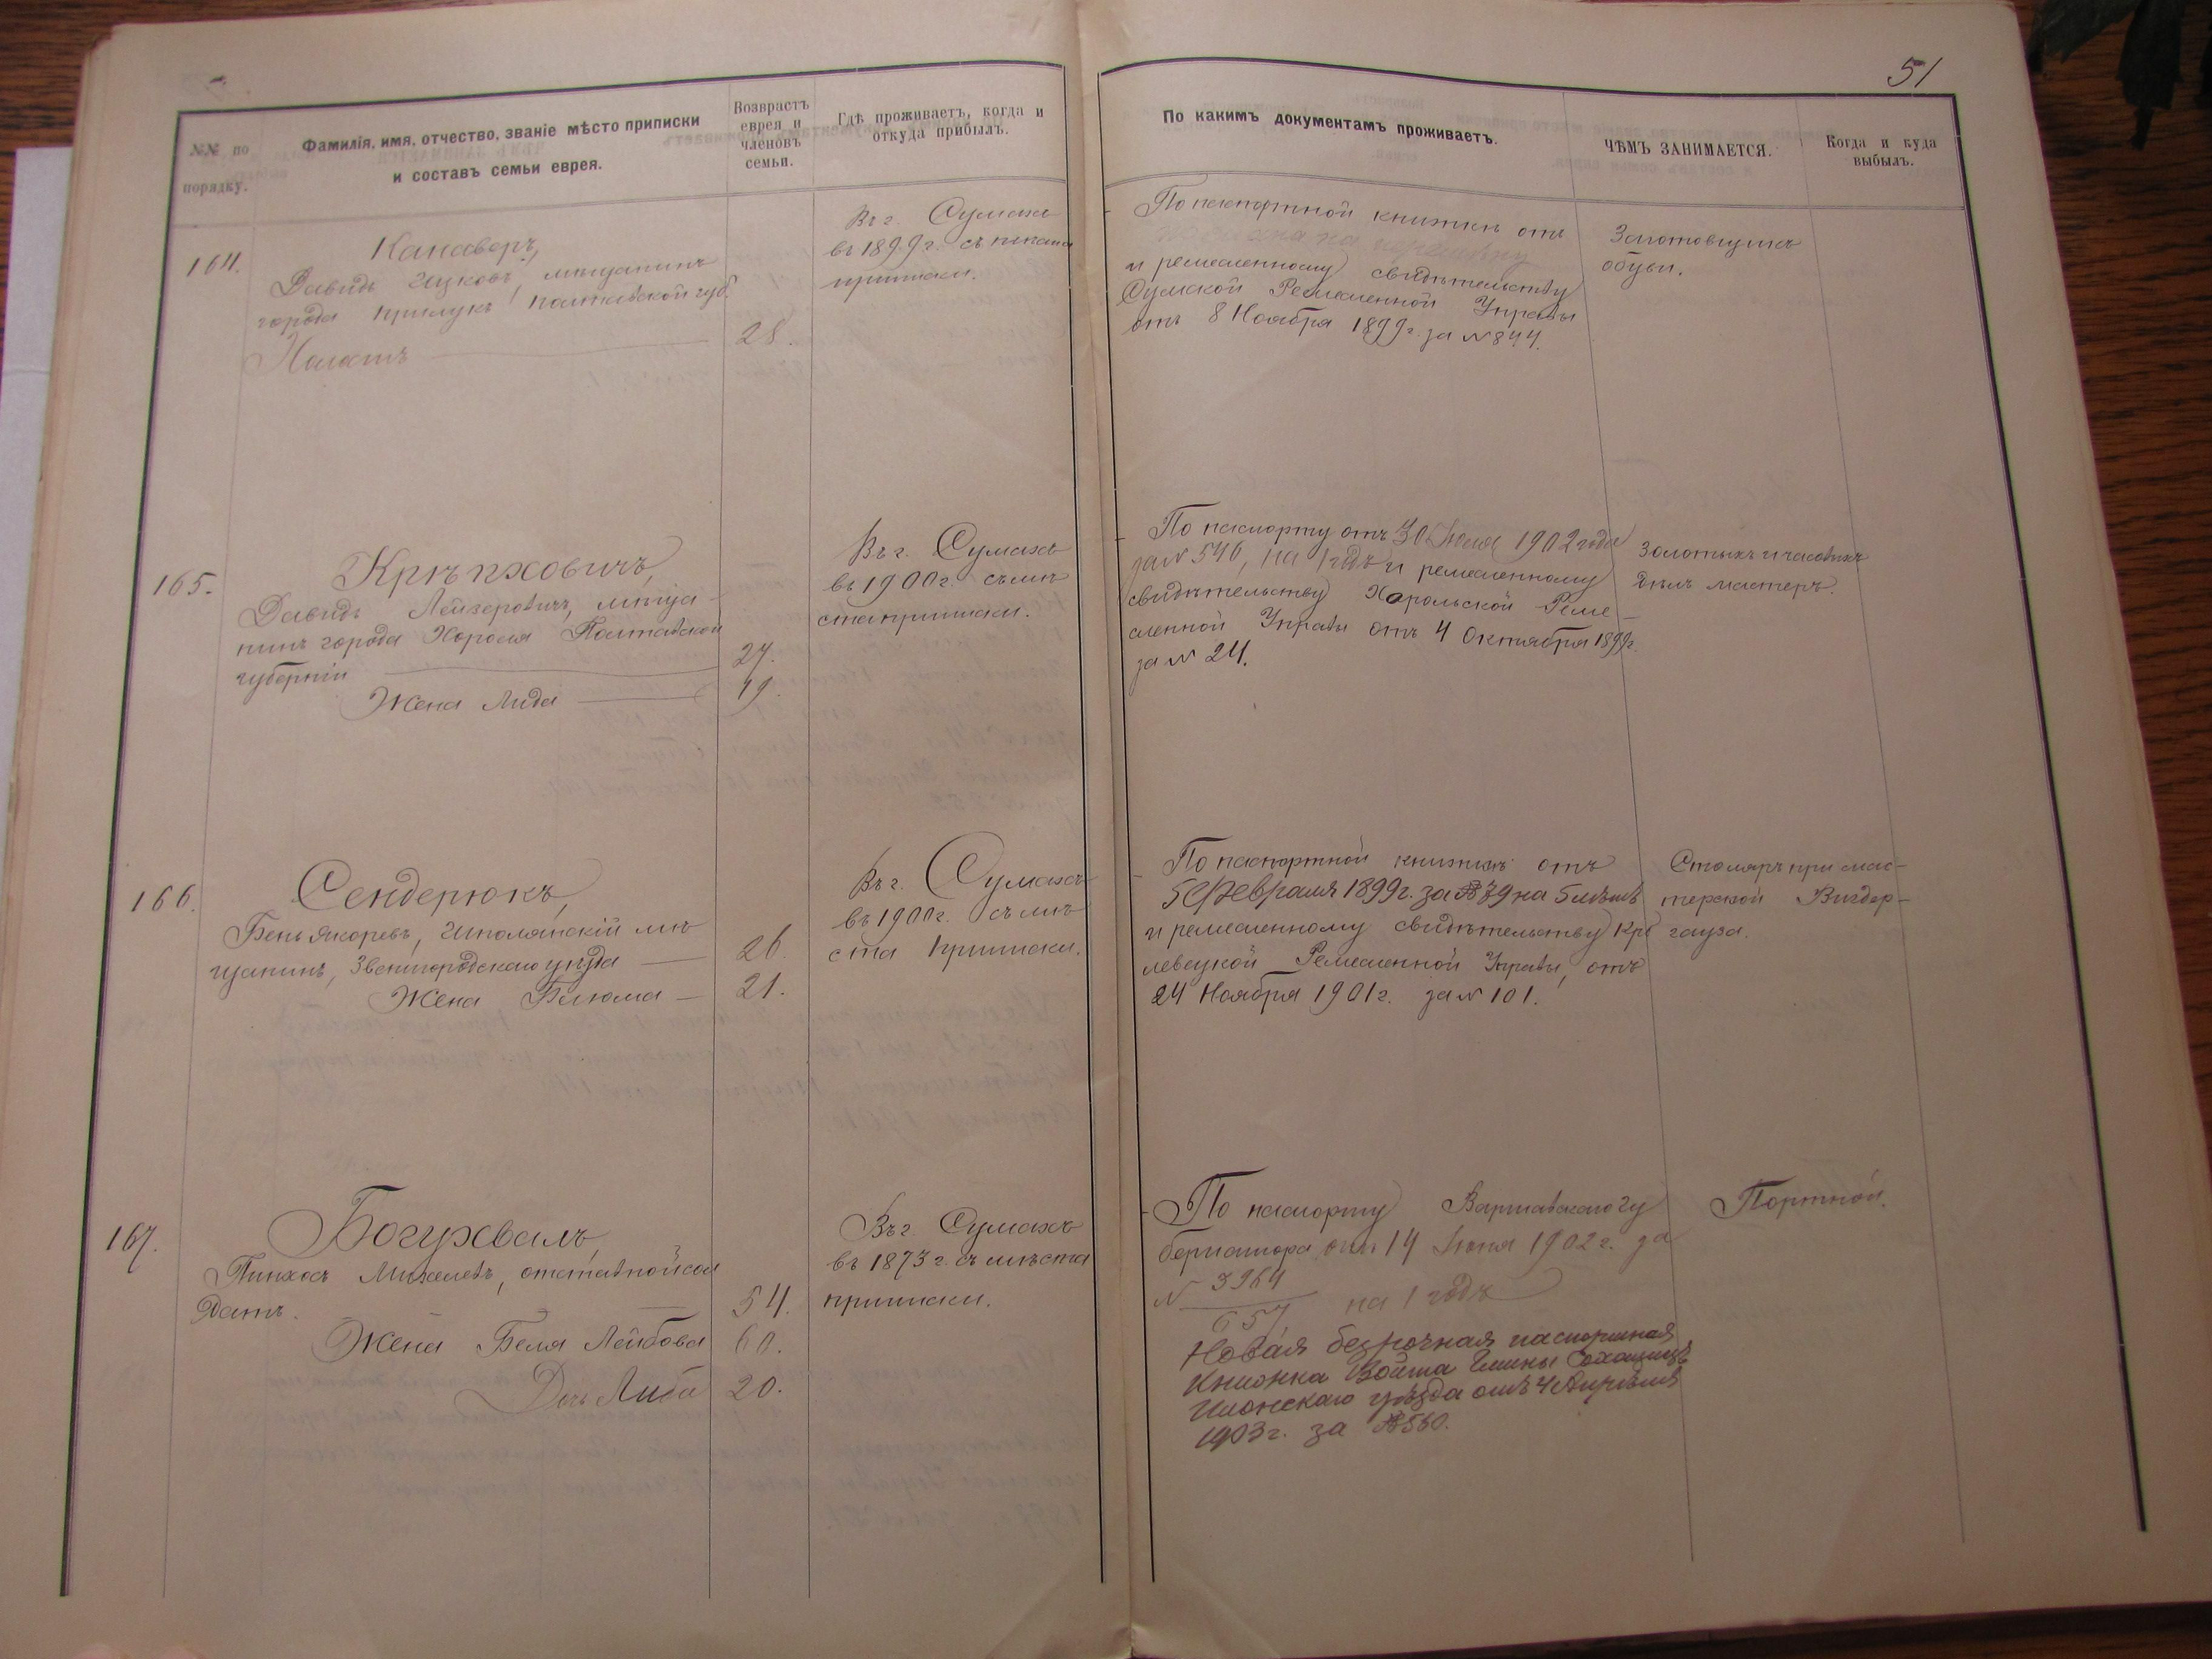 51
№№ по порядку.
Фамилія, имя, отчество, званіе мѣсто приписки
и составъ семьи еврея.
Возврастъ
еврея и
членовъ
семьи.
Гдѣ проживаетъ, когда и
откуда прибылъ.
По какимъ документамъ проживаетъ.
ЧѢМЪ ЗАНИМАЕТСЯ.
Когда и куда
выбылъ.
164.
Канаворъ,
Давидъ Ицковъ, мѣщанинъ
города Прилукъ Полтавской губ.
Холостъ
28.
Въ г. Сумахъ
въ 1899 г. съ мѣста
приписки.
По паспортной книжкѣ отъ
и ремесленному свидѣтельству
Сумской Ремесленной Управы
отъ 8 Ноября 1899 г. за № 844.
Заготовщикъ
обуви.
165.
Крѣпховичъ,
Давидъ Лейзеровичъ, мѣща-
нинъ города Хороля Полтавской
губерніи
27.
Жена Лида
19.
Въ г. Сумахъ
въ 1900 г. съ мѣ
ста приписки.
По паспорту отъ 30 Іюля 1902 года
за № 546, на 1 годъ и ремесленному
свидѣтельству Хорольской Реме-
сленной Управы отъ 4 Октября 1899 г.
за № 24.
Золотыхъ и часовыхъ
дѣлъ мастеръ.
166.
Сендерюкъ,
Бень Якоревъ, Шполянскій мѣ
щанинъ, Звенигородскаго уѣзда
26.
Жена Блюма
21.
Въ г. Сумахъ
въ 1900 г. съ мѣ
ста приписки.
По паспортной книжкѣ отъ
5 Февраля 1899 г. за № 79 на 5 лѣтъ
и ремесленному свидѣтельству Кро
левецкой Ремесленной Управы, отъ
24 Ноября 1901 г. за № 101.
Столяръ при мас-
терской Вигдер-
гауза.
167.
Богухвалъ,
Пинхосъ Михелевъ, отставной сол
датъ.
54.
Жена Беля Лейбова
60.
Дочь Либа
20.
Въ г. Сумахъ
въ 1873 г. съ мѣста
приписки.
По паспорту Варшавскаго Гу
бернатора отъ 14 Іюня 1902 г. за
№ 3964
657, на 1 годъ
Новая безсрочная паспортная
книжка Войта Гмины
уѣзда отъ 4 Апрѣля
1903 г. за № 560.
Портной.